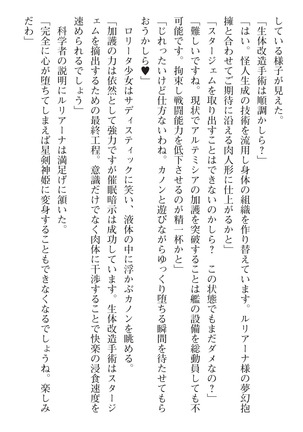 している様子が見えた。
「生体改造手術は順調かしら？」
「はい。怪人生成の技術を流用し身体の組織を作り替えています。ルリアーナ様の夢幻抱
擁と合わせてご期待に沿える肉人形に仕上がるかと」
「スタージェムを取り出すことはできないのかしら？　この状態でもまだダメなの？」
「難しいですね。現状でアルテミシアの加護を突破することは艦の設備を総動員しても不
可能です。拘束し戦闘能力を低下させるのが精一杯かと」
「じれったいけど仕方ないわね。カノンと遊びながらゆっくり堕ちる瞬間を待たせてもら
おうかしら♥」
　ロリータ少女はサディスティックに笑い、液体の中に浮かぶカノンを眺める。
「加護の力は依然として強力ですが催眠暗示は成功しています。生体改造手術はスタージ
ェムを摘出するための最終工程。意識だけでなく肉体に干渉することで快楽の浸食速度を
速められるでしょう」
　科学者の説明にルリアーナは満足げに頷いた。
「完全に心が堕ちてしまえば星剣神姫に変身することもできなくなるでしょうね。楽しみ
だわ」